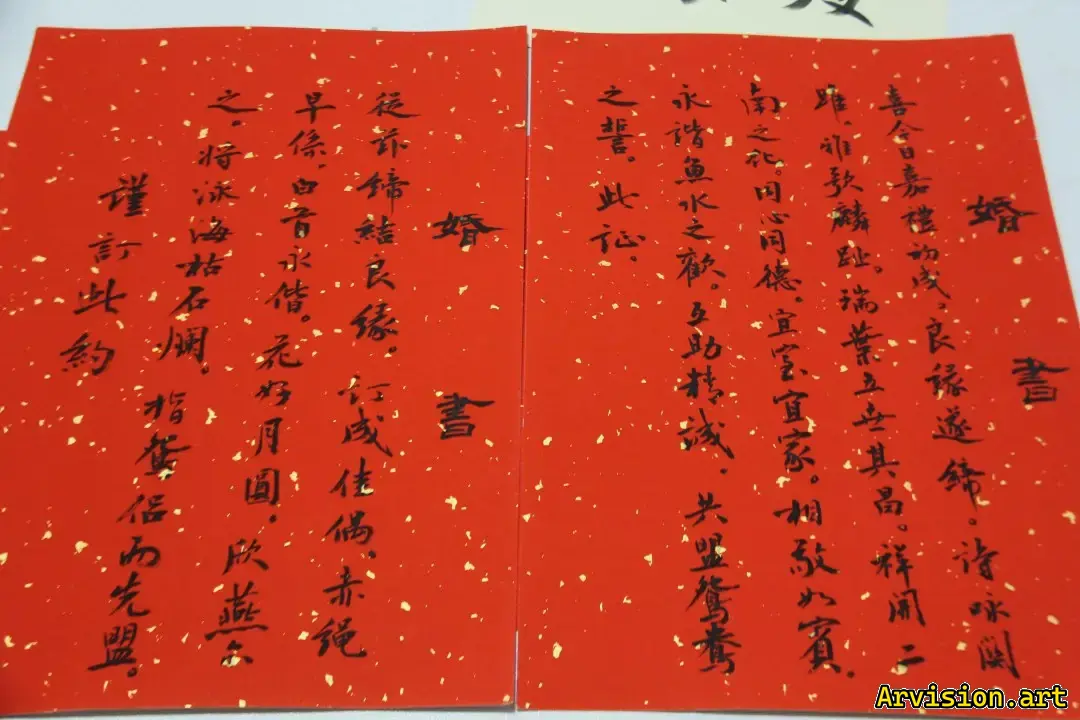 婚書
喜今日嘉禮初成,良緣遂締。詩咏関
雎,雅歌麟趾。瑞葉五世其昌。祥開二
南之化。同心同德。宜室宜家。相敬如賓。
永諧魚水之歡。互助精誠。共盟鴛鴦
之誓。此证。
婚書
從茲締結良緣。订成佳偶、赤绳
早係。白首永偕。花好月圓。欣燕尒
之。将泳海枯石爛。指鴛侣而先盟。
謹訂此約
Arvision.art